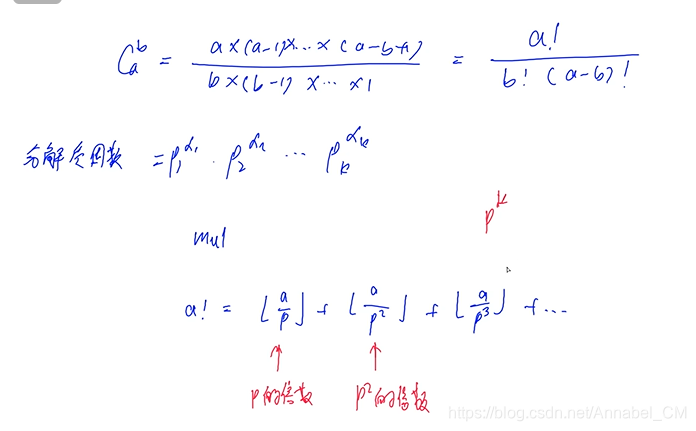 C_a^b = \frac{a×(a-1)×…×(a-b+1)}{b×(b-1)×…×1} = \frac{a!}{b!(a-b)!}
分解质因数 = p_1^{α_1} · p_2^{α_2} … p_k^{α_k}
p^k
mul
a! = ⌊\frac{a}{p}⌋ + ⌊\frac{a}{p^2}⌋ + ⌊\frac{a}{p^3}⌋ + …
↑ ↑
p的倍数 p^2的倍数
https://blog.csdn.net/Annabel_CM